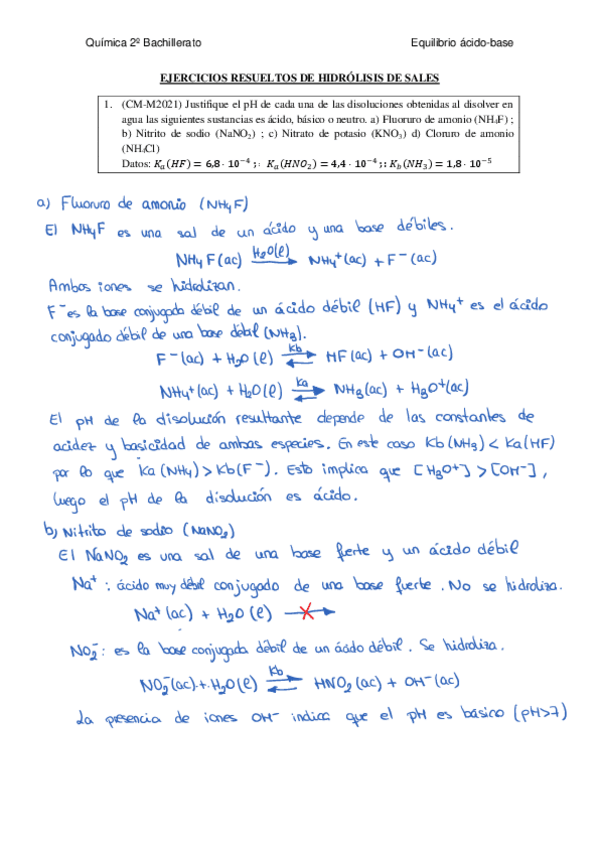 Química 2º Bachillerato Equilibrio ácido-base
EJERCICIOS RESUELTOS DE HIDRÓLISIS DE SALES
1. (CM-M2021) Justifique el pH de cada una de las disoluciones obtenidas al disolver en
agua las siguientes sustancias es ácido, básico o neutro. a) Fluoruro de amonio (NH₄F) ;
b) Nitrito de sodio (NaNO₂) ; c) Nitrato de potasio (KNO₃) d) Cloruro de amonio
(NH₄Cl)
Datos: Kₐ(HF) = 6,8 · 10⁻⁴ ; Kₐ(HNO₂) = 4,4 · 10⁻⁴ ; K_b(NH₃) = 1,8 · 10⁻⁵
a) Fluoruro de amonio (NH₄F)
El NH₄F es una sal de un ácido y una base débiles.
NH₄F (ac) —H₂O(l)→ NH₄⁺(ac) + F⁻(ac)
Ambos iones se hidrolizan.
F⁻ es la base conjugada débil de un ácido débil (HF) y NH₄⁺ es el ácido
conjugado débil de una base débil (NH₃).
F⁻(ac) + H₂O (l) ⇌ Kb HF(ac) + OH⁻(ac)
NH₄⁺(ac) + H₂O(l) ⇌ Ka NH₃(ac) + H₃O⁺(ac)
El pH de la disolución resultante depende de las constantes de
acidez y basicidad de ambas especies. En este caso Kb(NH₃) < Ka(HF)
por lo que Ka(NH₄) > Kb(F⁻). Esto implica que [H₃O⁺] > [OH⁻],
luego el pH de la disolución es ácido.
b) Nitrito de sodio (NaNO₂)
El NaNO₂ es una sal de una base fuerte y un ácido débil
Na⁺ : ácido muy débil conjugado de una base fuerte. No se hidroliza.
Na⁺(ac) + H₂O (l) →
NO₂⁻: es la base conjugada débil de un ácido débil. Se hidroliza.
NO₂⁻(ac) + H₂O(l) ⇌ Kb HNO₂(ac) + OH⁻(ac)
La presencia de iones OH⁻ indica que el pH es básico (pH>7)